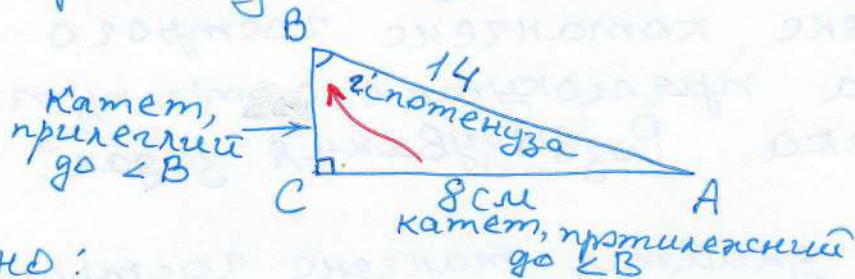 B
14
гіпотенуза
Катет,
прилеглий
до ∠B
C
8 см
A
катет, протилежний
до ∠B
но: